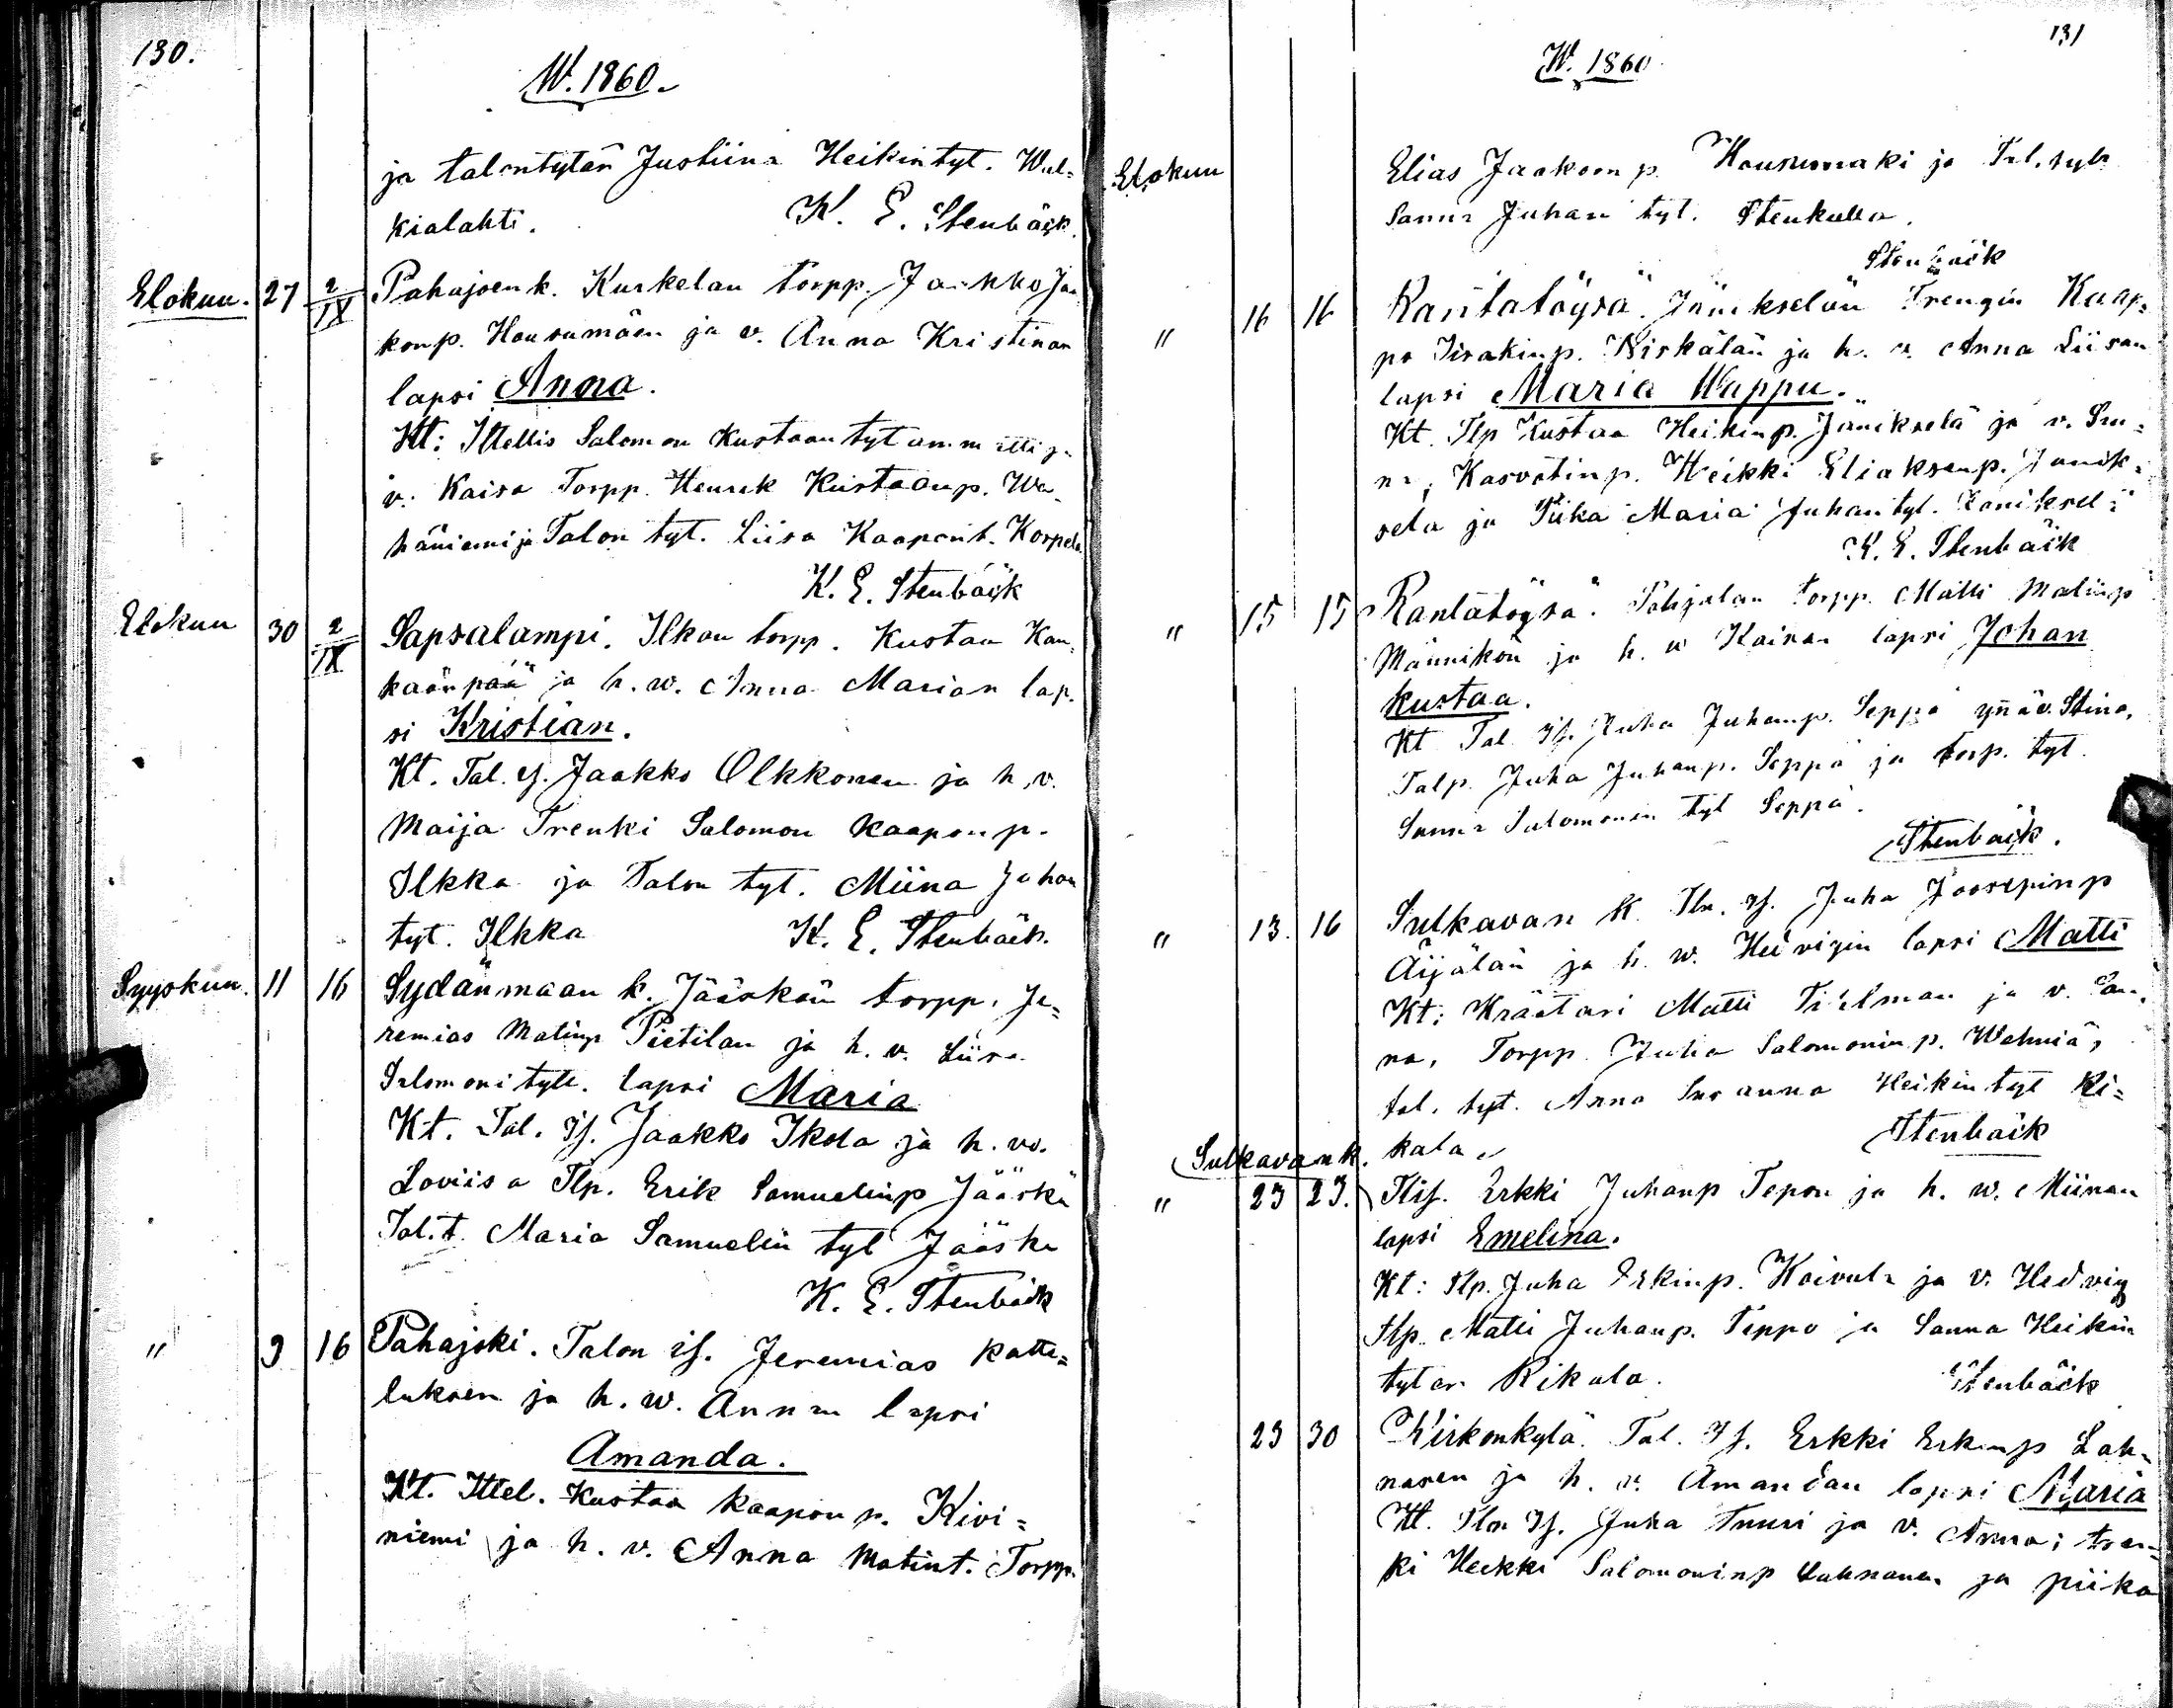 130.
W. 1860.
ja talontytän Justiina Heikintyt. Wal=
kialahti. K. E. Stenbäck.
Elokuu. 27 2/IX Pahajoen k. Kurkelan torpp. Jaakko Jaa
konp. Housumäen ja v. Anna Kristinan
lapsi Anna.
Kt: Ittellis Salomon Kustaan tyt
v. Kaisa Torpp. Henrik Kustaanp. Wä
häniemi ja Talon tyt. Liisa Kaapont. Korpela
K. E. Stenbäck
Elokuu 30 2/IX Sapsalampi. Ilkan torpp. Kustaa Kan
kaänpää ja h. w. Anna Marian lap.
si Kristian.
Kt. Tal. ij. Jaakko Olkkonen ja h. v.
Maija Trenki Salomon Kaaponp.
Ilkka ja Talon tyt. Miina Juhan
tyt. Ilkka K. E. Stenbäck.
Syyskuu. 11 16 Sydänmaan k. Jääskän torpp. Je=
remias Matinp Pietilan ja h. v. Liisa
Salomoni tytt. lapsi Maria
Kt. Tal. Is. Jaakko Ikola ja h. vo.
Loviisa Tlp. Erik Samuelinp Jääskä
Tal. t. Maria Samuelin tyt Jääskä
K. E. Stenbäck
" 9 16 Pahajoki. Talon is. Jeremias Katte=
luksen ja h. w. Annan lapsi
Amanda.
Kt. Ittel. Kustaa Kaapon p. Kivi=
niemi ja h. v. Anna Matint. Torpp.
131
W. 1860
Elokuu Elias Jaakonp. Housumäki ja Tal. tytr
Sanna Juhan tyt. Stenkulla.
Stenbäck
" 16 16 Rantatöysä. Jänickselän Trengin Kaap=
po Iisakinp. Kiskälän ja h. v. Anna Liisan
lapsi Maria Wappu.
Kt. Tlp Kustaa Heikinp. Jänickselä ja v. San=
na, Kasvatinp. Heikki Eliaksenp. Jänick=
selä ja Piika Maria Juhantyt. Jänickselä
K. E. Stenbäck
" 15 15 Rantatöysä. Pohjalan torpp. Matti Matinp
Männikön ja h. w Kaisan lapsi Johan
Kustaa.
Kt Tal Is. Juha Juhanp. Seppä ynä v. Stina,
Talp. Juha Juhanp. Seppä ja torp. tyt.
Sanna Salomonin tyt Seppä.
Stenbäck.
" 13. 16 Sulkavan k. Tln. Is. Juha Joosepinp
Äijälän ja h. w. Hedvigin lapsi Matti
Kt: Kräätäri Matti Tielman ja v. San,
na, Torpp. Juha Salomonin p. Wehmiä,
tal. tyt. Anna Susanna Heikin tyt Ri=
kala. Stenbäck
Sulkavan k.
" 23 23. Tlis. Erkki Juhanp Tepon ja h. w. Miinan
lapsi Emelina.
Kt: Tlp. Juha Erkinp. Koivula ja v. Hedvig
Tlp. Matti Juhanp. Teppo ja Sanna Heikin
tytär Rikala. Stenbäck
23 30 Kirkonkylä. Tal. Is. Erkki Erkinp Lah=
nasen ja h. v. Amandan lapsi Maria
Kt. Tln Is. Juha Tuuri ja v. Anna; tren=
ki Heikki Salomoninp Lahnanen ja piika